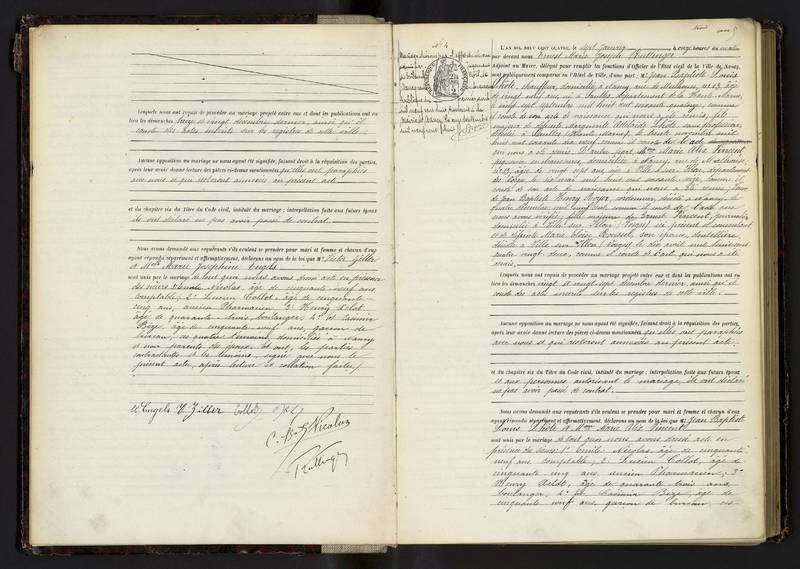 Lesquels nous ont requis de procéder au mariage projeté entre eux et dont les publications ont eu
lieu les dimanches treize et vingt décembre dernier, ainsi qu'il
conste des actes inscrits sur les registres de cette ville.
Aucune opposition au mariage ne nous ayant été signifiée, faisant droit à la réquisition des parties,
après leur avoir donné lecture des pièces ci-dessus mentionnées qu'elles ont paraphées
avec nous et qui resteront annexées au présent acte
et du chapitre six du Titre du Code civil, intitulé du mariage; interpellation faite aux futurs époux
ils ont déclaré ne pas avoir passé de contrat.
Nous avons demandé aux requérants s'ils veulent se prendre pour mari et femme et chacun d'eux
ayant répondu séparément et affirmativement, déclarons au nom de la loi que Mr Victor Zitter
et Mlle Marie Joséphine Engels
sont unis par le mariage de tout quoi nous avons dressé acte en présence
des sieurs Nicolas, âgé de cinquante neuf ans
comptable, 2° Lucien Collot, âgé de cinquante-
cinq ans, ancien Pharmacien 3° Henry Delot,
âgé de quarante-trois boulanger, 4° et Casimir
Bize, âgé de cinquante neuf ans, garçon de
bureau, ces quatre témoins domiciliés à Nancy
et non parents des époux. Et ont, les parties
contractantes et les témoins, signé avec nous le
présent acte, après lecture et collation faites.
M Engels V. Zitter Collot
Nicolas
N° 4
L'an mil neuf cent quatre, le sept janvier à onze heures du matin
par devant nous Ernest Marie Joseph
Adjoint au Maire, délégué pour remplir les fonctions d'Officier de l'État civil de la Ville de Nancy,
sont publiquement comparus en l'Hôtel de Ville, d'une part: Mr Jean Baptiste Louis
Lhote, chauffeur, domicilié à Nancy, rue de Mulhouse, n° 13, âgé
de vingt neuf ans, né à département de la Haute Marne,
le vingt sept septembre mil huit cent soixante quatorze, comme
il conste de son acte de naissance qui nous a été remis, fils
majeur de défunte Marguerite Adélaïde Lhote, sans profession,
décédée à (Haute Marne), le trente novembre mil
huit cent soixante dix neuf, comme il conste de l'acte
qui nous a été remis. D'autre part: Mme Marie Alix Vincent
en chaussures, domiciliée à Nancy, rue de Mulhouse,
n° 13, âgée de vingt sept ans, née à Ville sur Illon, département
des Vosges, le mil huit cent soixante seize, comme il
conste de son acte de naissance qui nous a été remis,
de Jean Baptiste Henry Royer, cordonnier, décédé à Nancy, le
décembre mil neuf cent, comme il conste de l'acte que
nous avons vérifié, fille majeure de Ernest Vincent, journalier
domicilié à Ville sur Illon (Vosges) ici présent et consentant
et de défunte Marie Louise son épouse,
décédée à Ville sur Illon (Vosges) le dix avril mil huit cent
quatre vingt deux, comme il conste de l'acte qui nous a été
remis.
Lesquels nous ont requis de procéder au mariage projeté entre eux et dont les publications ont eu
lieu les dimanches vingt et vingt sept décembre dernier, ainsi qu'il
conste des actes inscrits sur les registres de cette ville.
Aucune opposition au mariage ne nous ayant été signifiée, faisant droit à la réquisition des parties,
après leur avoir donné lecture des pièces ci-dessus mentionnées qu'elles ont paraphées
avec nous et qui resteront annexées au présent acte
et du chapitre six du Titre du Code civil, intitulé du mariage; interpellation faite aux futurs époux
et aux personnes autorisant le mariage, ils ont déclaré
ne pas avoir passé de contrat.
Nous avons demandé aux requérants s'ils veulent se prendre pour mari et femme et chacun d'eux
ayant répondu séparément et affirmativement, déclarons au nom de la loi que Mr Jean Baptiste
Louis Lhote et Mme Marie Alix Vincent
sont unis par le mariage de tout quoi nous avons dressé acte en
présence de sieurs: 1° Emile Nicolas, âgé de cinquante
neuf ans, comptable, 2° Lucien Collot, âgé de
cinquante cinq ans, ancien Pharmacien, 3°
Henry Delot, âgé de quarante trois ans
boulanger, 4° et Casimir Bize, âgé de
cinquante neuf ans, garçon de bureau, ces